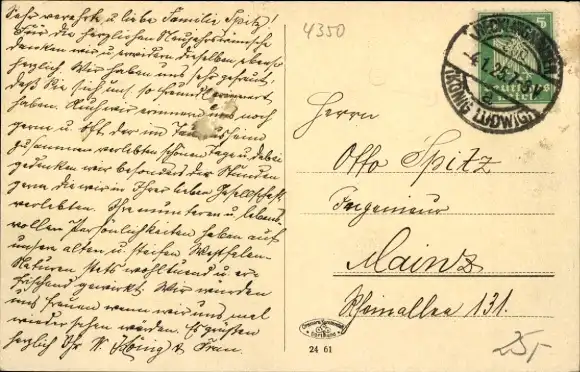 Sehr verehrte u. liebe Familie Spitz!
Für die herzlichen Neujahrswünsche
danken wir u. erwidern dieselben ebenso
herzlich. Wir haben uns sehr gefreut,
daß Sie sich uns so freundl. erinnert
haben. Auch wir erinnern uns noch
gerne u. oft der im
zusammen verlebten schönen Tage u. dabei
gedenken wir besonders der Stunden
gern, die wir in Ihrer lieben Gesellschaft
verlebten. Ihre munteren u. lebens-
vollen Persönlichkeiten haben auf
unsere alten u. steifen Westfalen-
Naturen stets wohltuend u. er-
frischend gewirkt. Wir würden
uns freuen wenn wir uns mal
wiedersehen würden. Es grüßen
herzlich Ihr W. König & Frau.
4350
RECKLINGHAUSEN
4.1.25
(KÖNIG LUDWIG)
5
Herrn
Otto Spitz
Ingenieur
Mainz
Rheinallee 131.
24 61
25,-